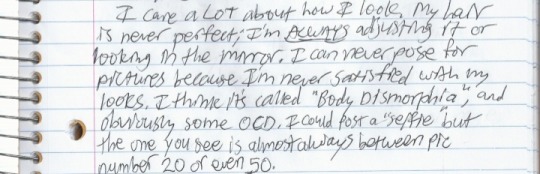 I care a LOT about how I look, My hair
is never perfect; I'm ALWAYS adjusting it or
looking in the mirror. I can never pose for
pictures because I'm never satisfied with my
looks. I think it's called "Body Dismorphia", and
obviously some OCD. I could post a "selfie" but
the one you see is almost always between pic
number 20 or even 50.